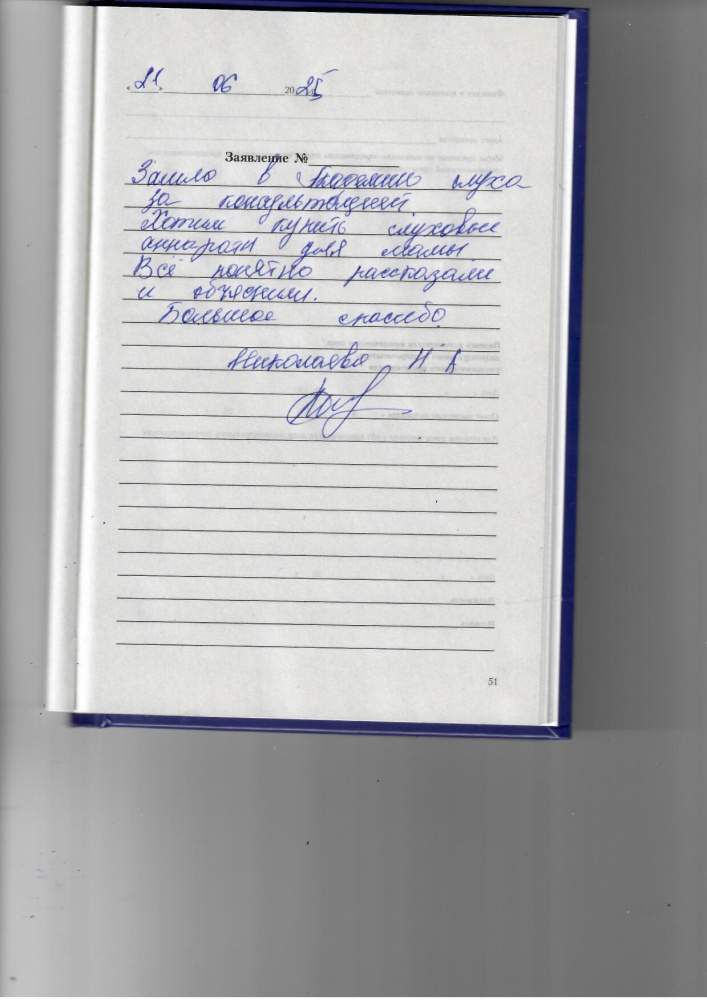 21. 06 2025
Заявление №
Зашла в Академию слуха
за консультацией.
Хотим купить слуховые
аппараты для мамы
Всё понятно рассказали
и объяснили.
Большое спасибо.
Николаева Н А
51